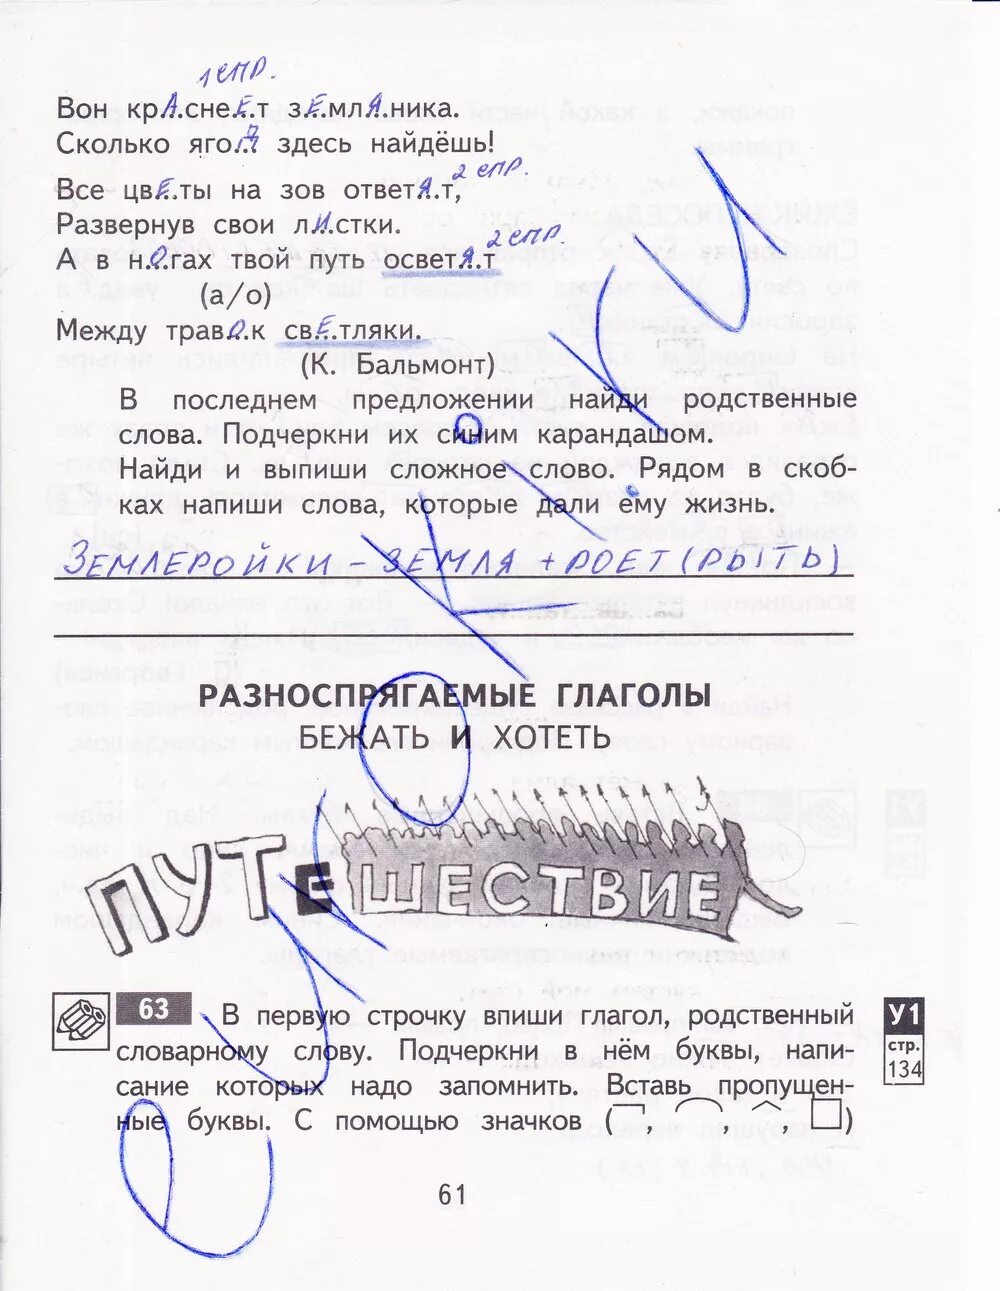 1 СПР.
Вон крА.снеЕ.т зЕ.млА.ника.
Сколько ягод здесь найдёшь!
2 СПР.
Все цвЕ.ты на зов ответЯ.т,
Развернув свои лИ.стки.
2 СПР
А в нО.гах твой путь осветЯ.т
(а/о)
Между травО.к свЕ.тляки.
(К. Бальмонт)
В последнем предложении найди родственные
слова. Подчеркни их синим карандашом.
Найди и выпиши сложное слово. Рядом в скоб-
ках напиши слова, которые дали ему жизнь.
ЗЕМЛЕРОЙКИ – ЗЕМЛЯ + РОЕТ (РЫТЬ)
РАЗНОСПРЯГАЕМЫЕ ГЛАГОЛЫ
БЕЖАТЬ И ХОТЕТЬ
ПУТЕШЕСТВИЕ
63 В первую строчку впиши глагол, родственный
словарному слову. Подчеркни в нём буквы, напи-
сание которых надо запомнить. Вставь пропущен-
ные буквы. С помощью значков ( , , , )
У1
стр.
134
61